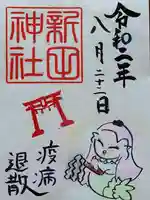 令和二年
八月二十二日
新田
神社
疫病
退散